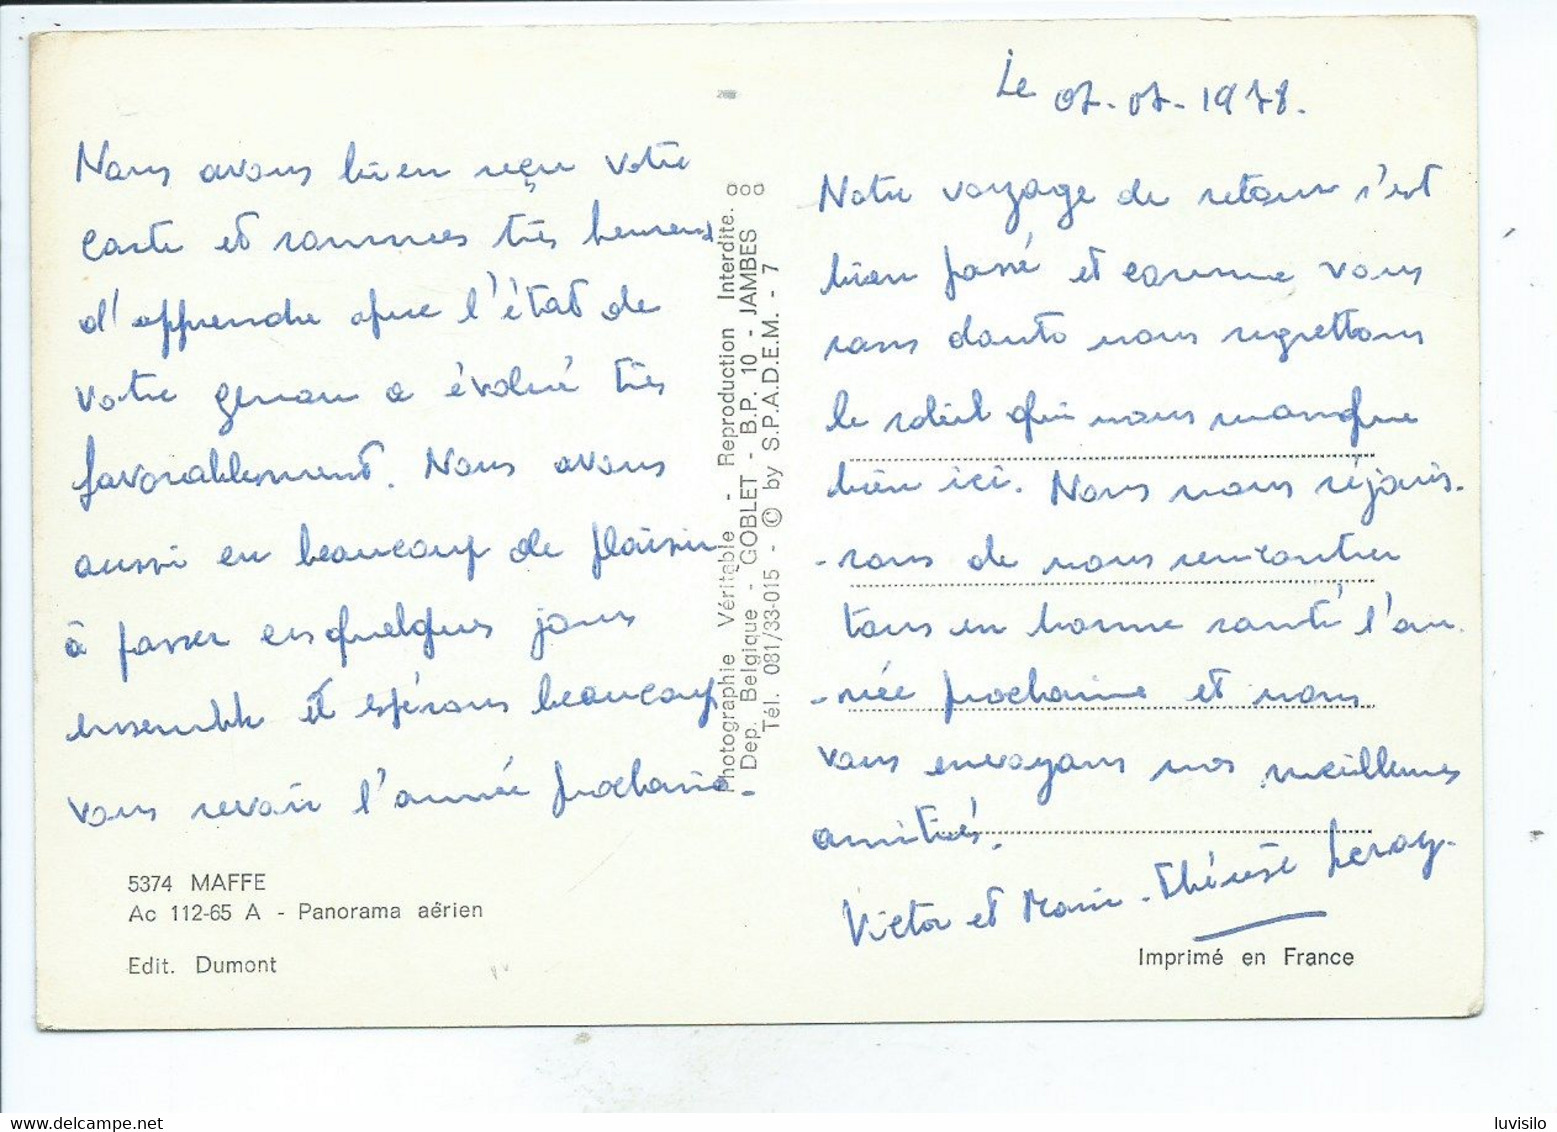 Le 07-07-1978.
Nous avons bien reçu votre
carte et sommes très heureux
d'apprendre que l'état de
votre genou a évolué très
favorablement. Nous avons
aussi eu beaucoup de plaisir
à passer ces quelques jours
ensemble et espérons beaucoup
vous revoir l'année prochaine.
5374 MAFFE
Ac 112-65 A - Panorama aérien
Edit. Dumont
Photographie Véritable - Reproduction Interdite.
Dep. Belgique - GOBLET - B.P. 10 - JAMBES
Tél. 081/33-015 - © by S.P.A.D.E.M. - 7
Notre voyage de retour s'est
bien passé et comme vous
sans doute nous regrettons
le soleil qui nous manque
bien ici. Nous nous réjouis-
-sons de nous rencontrer
tous en bonne santé l'an-
-née prochaine et nous
vous envoyons nos meilleures
amitiés.
Victor et Marie-Thérèse Leroy.
Imprimé en France
luvisilo